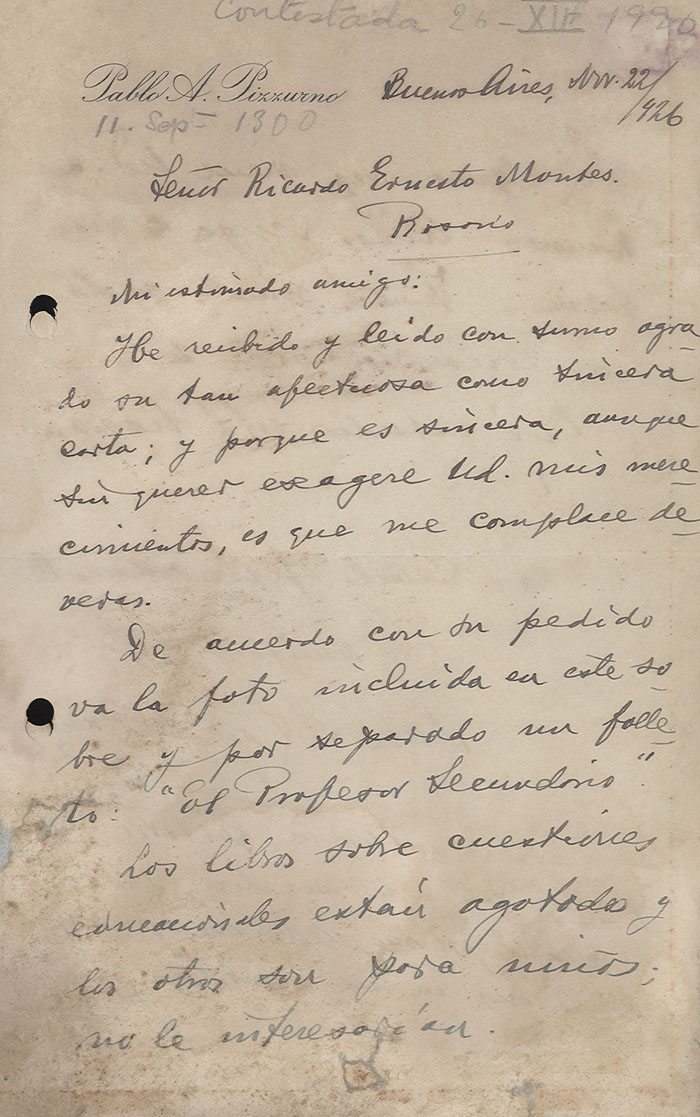 Contestada 26-XII-1926
Pablo A. Pizzurno
Buenos Aires, Nov. 22/926
11. Sep- 1300
Señor Ricardo Ernesto Montes.
Rosario
Mi estimado amigo:
He recibido y leído con sumo agra-
do su tan afectuosa como sincera
carta; y porque es sincera, aunque
sin querer exagere Ud. mis mere-
cimientos, es que me complace de-
veras.
De acuerdo con su pedido
va la foto incluida en este so-
bre y por separado un folle-
to: "El Profesor Secundario".
Los libros sobre cuestiones
educacionales están agotados y
los otros son para niños;
no le interesarían.